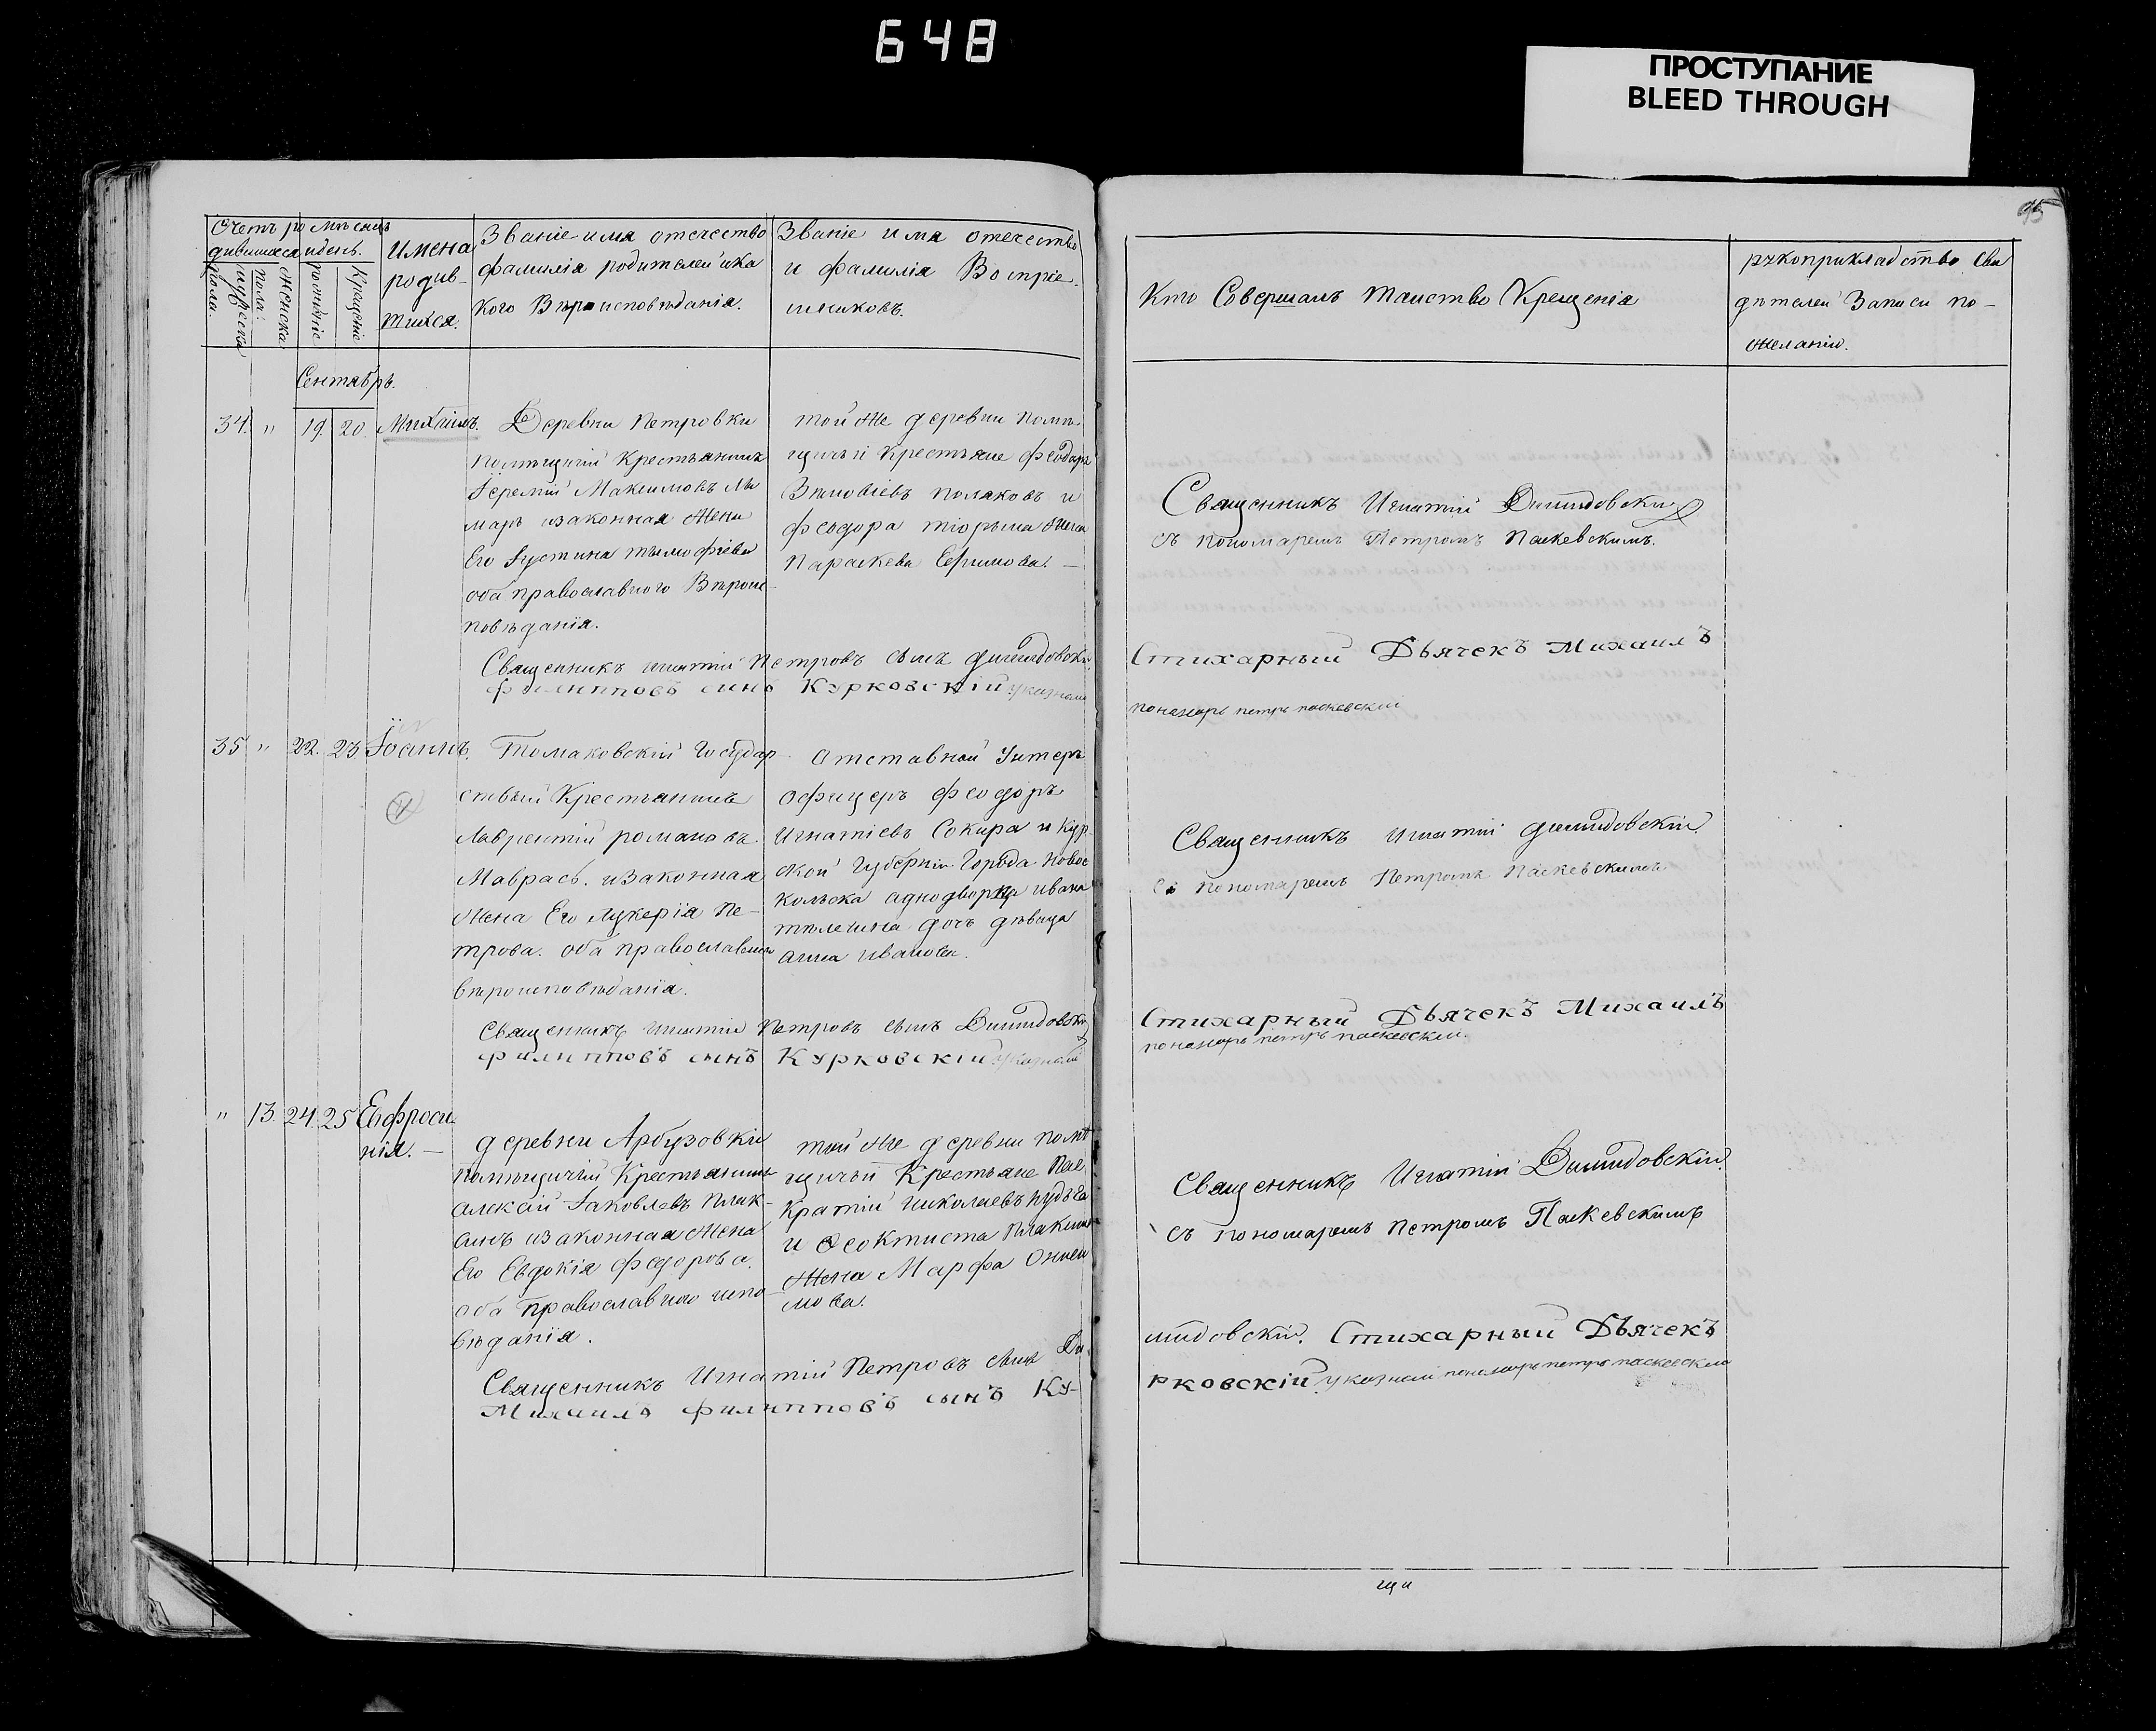 648
ПРОСТУПАНИЕ
BLEED THROUGH
95
Счетъ ро
дившихся
Мѣсяцъ
и день.
мужеска
пола.
женска
пола.
рожденіе
Крещеніе
Имена
родив-
шихся.
Званіе имя отечество
фамилія родителей и ка
кого Вѣроисповѣданія.
Званіе имя отечество
и фамилія Воспріе-
мниковъ.
Кто Совершалъ таинство Крещенія
рукоприкладство Сви
дѣтелей Записи по-
желанію.
Сентябрь.
34. " 19. 20. Михаилъ.
Деревни Петровки
помѣщичій Крестьянинъ
Іеремій Максимовъ
изаконная Жена
Его Іустина тимофіева
оба православного Вѣроис-
повѣданія.
той же деревни помѣ
щичьи Крестьяне феодоръ
Зиновіевъ поляковъ и
феодора жена
Параскева Ефимова. —
Священникъ Игнатій
съ пономаремъ Петромъ Паскевскимъ.
Священникъ игнатій Петровъ сынъ
Стихарный Дьячекъ Михаилъ
филипповъ сынъ Курковскій указной
пономарь петръ паскевскій
35 " 22. 23. Іоаннъ.
Томаковскій Государ-
ствый Крестьянинъ
Лаврентій романовъ
Маврась. изаконная
Жена Его лукерія Пе-
трова. оба православного
вѣроисповѣданія.
Атставной Унтеръ
офицеръ феодоръ
Игнатіевъ Сокира и Кур-
ской Губерніи Города Новос
кольска аднодворца ивана
дочь дѣвица
анна иванова.
Священникъ игнатій
съ пономаремъ Петромъ Паскевскимъ
Священникъ игнатій Петровъ сынъ
Стихарный Дьячекъ Михаилъ
филипповъ сынъ Курковскій указной
пономарь петръ паскевскій.
" 13. 24. 25 Евфроси-
нія. —
деревни Арбузовки
помѣщичій Крестьянинъ
алексій Іаковлевъ Плак-
синъ изаконная Жена
Его Евдокія федорова.
оба православного испо-
вѣданія.
той же деревни помѣ
щичьи Крестьяне
Кратій николаевъ
и Феоктиста
Жена Марфа
мова.
Священникъ Игнатій
съ пономаремъ Петромъ Паскевскимъ
Священникъ Игнатій Петровъ сынъ
Стихарный Дьячекъ
Михаилъ филипповъ сынъ Ку-
рковскій указной пономарь петръ паскевскій